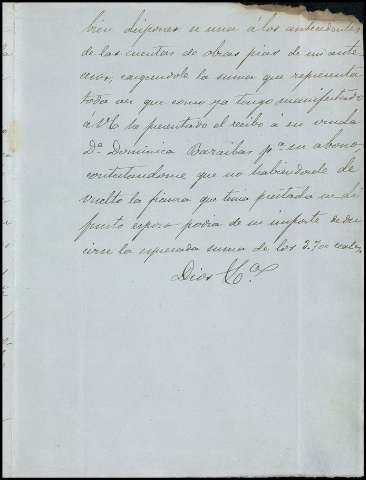 bien disponer se una á los antecedentes
de las cuentas de obras pias de mi ante
cesor, cargandole la suma que representa
toda vez que como ya tengo manifestado
á V.E. ha presentado el recibo á su viuda
Dª Dominica Baraibar pª su abono
contestandome que no habiendole de
vuelto la fianza que tenia prestada su di
funto esposo podia de su importe dedu
cirse la espresada suma de los 270 reales,
Dios &ª